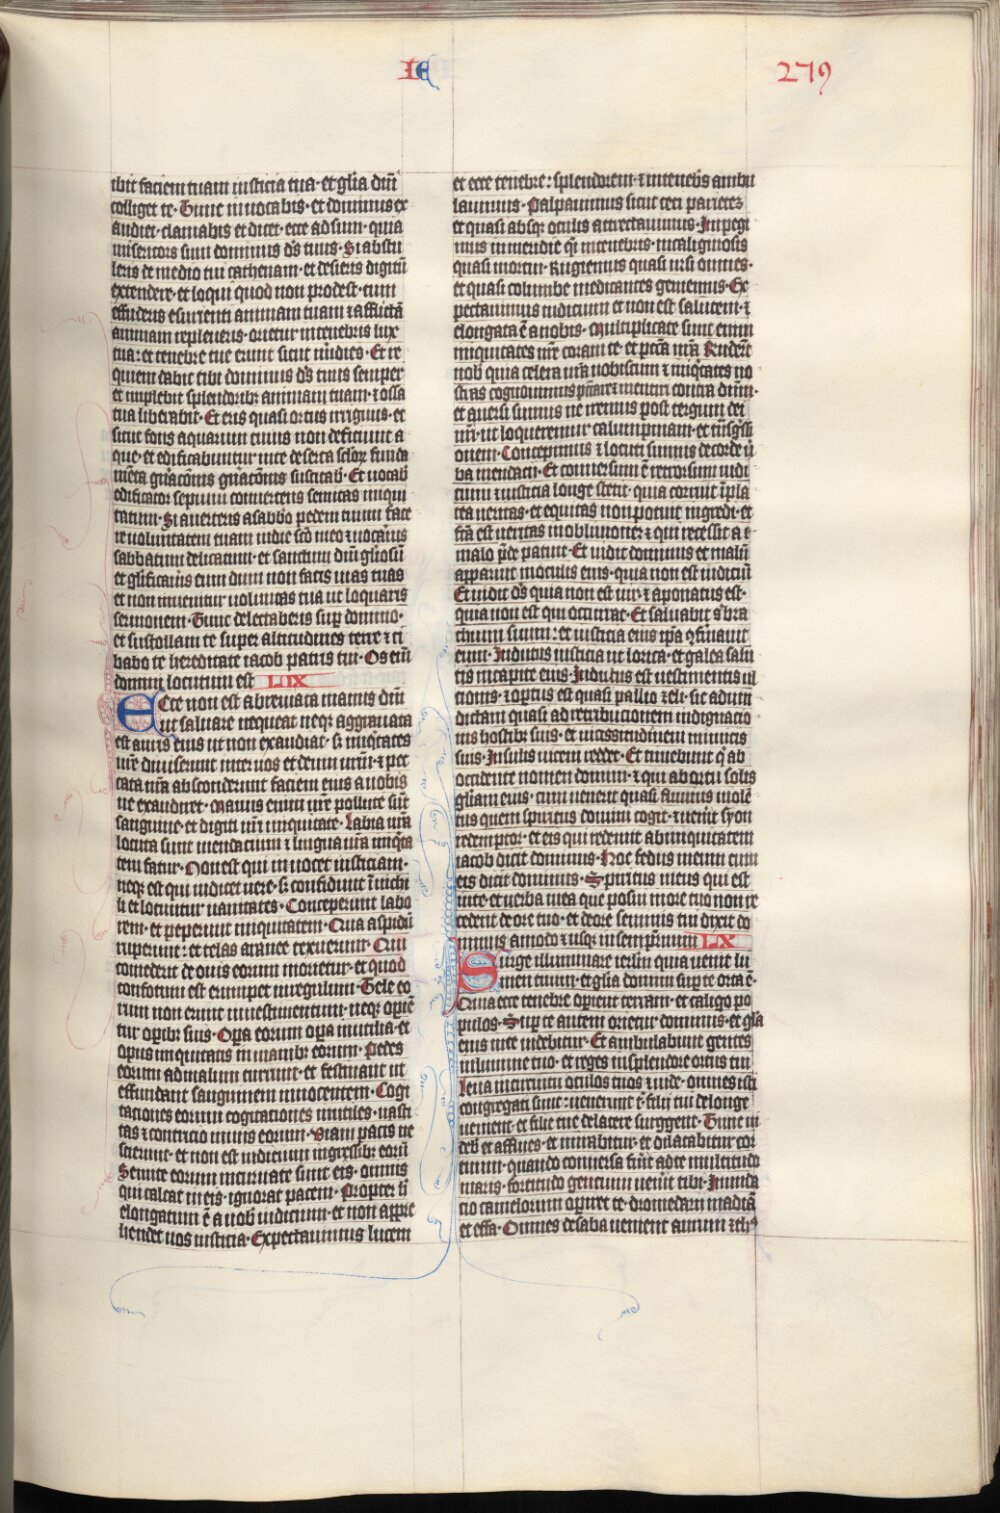 IE
279
ibit faciem tuam iusticia tua· et glīa dnī
colliget te· Tunc inuocabis· et dominus ex
audiet· clamabis et dicet· ecce adsum· quia
misericors sum dominus dꝰs tuus· Si abstu
leris de medio tui cathenam· et desieris digitū
extendere· et loqui quod non prodest· cum
effuderis esurienti animam tuam ⁊ afflictā
animam repleueris· orietur in tenebris lux
tua: et tenebre tue erunt sicut mīdies· Et re
quiem dabit tibi dominus dꝰs tuus semper
et implebit splendoribꝰ animam tuam· ⁊ ossa
tua liberabit· Et eris quasi ortus irriguus· et
sicut fons aquarum cuius non deficiunt a
que· et edificabuntur in te deserta sclōꝝ funda
mēta gnāconis ⁊ gnāconis suscitab̄· Et uocab̄
edificator sepium conuertens semitas iniqui
tatum· Si auerteris a sabb̄o pedem tuum face
re uoluntatem tuam in die scō meo ⁊ uocau̅is
sabbatum delicatum· et sanctum dn̄i gl̄iosū
et gl̄ificau̅is eum dum non facis uias tuas
et non inuenitur uoluntas tua ut loquaris
sermonem· Tunc delectaberis sup̄ domino·
et sustollam te super altitudines terre ⁊ ci
babo te hereditate iacob patris tui· Os enī
domini locutum est LIX
Ecce non est abreuiata manus dn̄i
ut saluare nequeat neqꝫ aggrauata
est auris eius ut non exaudiat· s; iniq̄tates
ur̄e diuiserunt inter uos et deum ur̄m· ⁊ pec
cata ur̄a absconderunt faciem eius a uobis
ne exaudiret· Manus enim ur̄e pollute sūt
sanguine· et digiti ur̄i iniquitate· Labia ur̄a
locuta sunt mendacium ⁊ lingua ur̄a iniq̄ta
tem fatur· Non est qui inuocet iusticiam·
neqꝫ est qui iudicet uere· s; confidunt ī nichi
li et locuntur uanitates· Conceperunt labo
rem· et pepererunt iniquitatem· Oua aspidū
ruperunt: et telas aranee texuerunt· Qui
comederit de ouis eorum morietur· et quod
confotum est erumpet in regulum· Tele eo
rum non erunt in uestimentum· neqꝫ opiē
tur opibꝰ suis· Opa eorum opa inutilia· et
opus iniquitatis in manibꝰ eorum· Pedes
eorum ad malum currunt· et festinant ut
effundant sanguinem innocentem· Cogi
tationes eorum cogitationes inutiles· uasti
tas ⁊ contricio in uiis eorum· Viam pacis ne
scierunt· et non est iudicium in gressibꝰ eorū
Semite eorum incuruate sunt eis· omnis
qui calcat in eis· ignorat pacem· Propter h̄
elongatum ē a nob̄ iudicium· et non appre
hendet nos iusticia· Expectauimus lucem
et ecce tenebre: splendorem· ⁊ in tenebꝰs ambu
lauimus· Palpauimus sicut ceci parietes
et quasi absqꝫ oculis attrectauimus· Impegi
mus in meridie q̄i in tenebris· in caliginosis
quasi mortui· Rugiemus quasi ursi omnes·
et quasi columbe meditantes gememus· Ex
pectauimus iudicium et non est salutem· ⁊
elongata ē a nobis· Multiplicate sunt enim
iniquitates nr̄e coram te· et pctā nr̄a rn̄derūt
nob̄ quia celera nr̄a nobiscum ⁊ iniq̄tates no
stras cognouimus peccare ⁊ mentiri contra dn̄m·
et auersi sumus ne iremus post tergum dei
nr̄i· ut loqueremur calumpniam· et tn̄sgr̄ssi
onem· Concepimus ⁊ locuti sumus de corde u̅
ba mendacij· Et conuersum ē retrorsum iudi
cium ⁊ iusticia longe stetit· quia corruit ī pla
tea ueritas· et equitas non potuit ingredi· et
fc̄a est ueritas in obliuionem: ⁊ qui recessit a
malo p̄de patuit· Et uidit dominus et malū
apparuit in oculis eius· quia non est iudiciū
Et uidit dꝰs quia non est uir· ⁊ aporiatus est·
quia non est qui occurrat· Et saluabit s̄ bra
chium suum: et iusticia eius ip̄a cfirmauit
eum· Indutus iusticia ut lorica· et galea salu
tis in capite eius· Indutus est uestimentis ul
tionis· ⁊ opertus est quasi pallio zeli· sic ad uin
dictam quasi ad retribucionem indignacio
nis hostibꝰ suis· et uicissitudinem inimicis
suis· Insulis uicem reddet· Et timebunt q̄ ab
occidente nomen domini· ⁊ qui ab ortu solis
gl̄iam eius· cum uenerit quasi fluuius uiolē
tus quem spiritus domini cogit· ⁊ uenit syon
redemptor· et eis qui redeunt ab iniquitatem
iacob dicit dominus· Hoc fedus meum cum
eis dicit dominus· Spiritus meus qui est
in te· et uerba mea que posui in ore tuo non re
cedent de ore tuo· et de ore seminis tui dixit do
minus amodo ⁊ usqꝫ in sempit̄num LX
Surge illuminare ierl̄m quia uenit lu
men tuum· et glīa domini sup̄ te orta ē·
Quia ecce tenebre operient terram· et caligo po
pulos· Sup̄ te autem orietur dominus· et gl̄a
eius in te uidebitur· Et ambulabunt gentes
in lumine tuo· et reges in splendore ortus tui
Leua in circuitu oculos tuos ⁊ uide· omnes isti
congregati sunt: uenerunt t̄· filii tui de longe
uenient· et filie tue de latere surgent· Tunc ui
deb̄ et afflues· et mirabitur· et dilatabitur cor
tuum· quando conuersa fūit ad te multitudo
maris· fortitudo gentium uenit tibi· Inunda
cio camelorum operiet te· dromedarii madiā
et effa· Omnes de saba uenient aurum ⁊ thꝰ